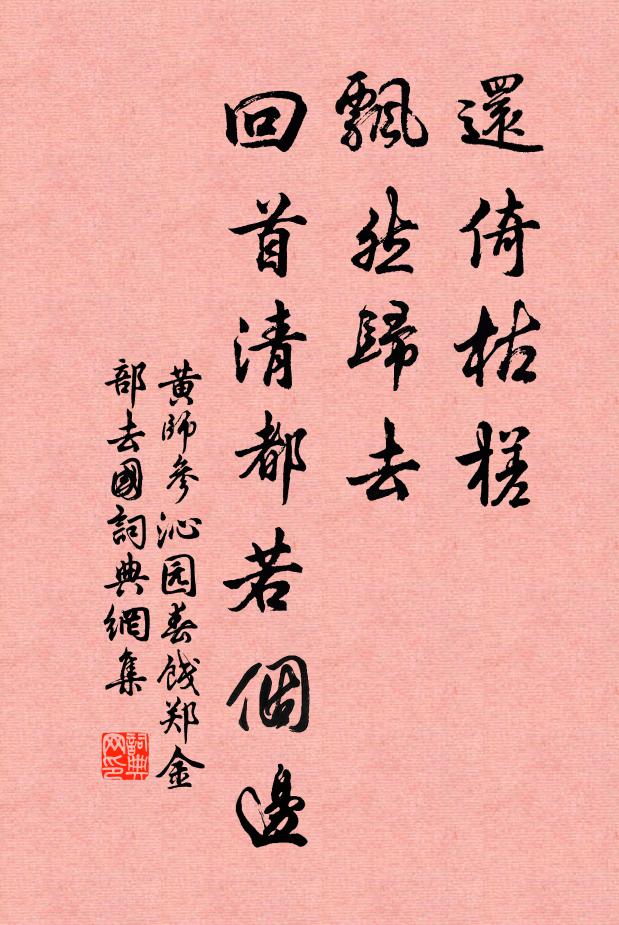 還倚枯槎
飄然歸去
回首清都若個邊
黄師參沁园春餞郑金
部去國詞典網集
詞典網印